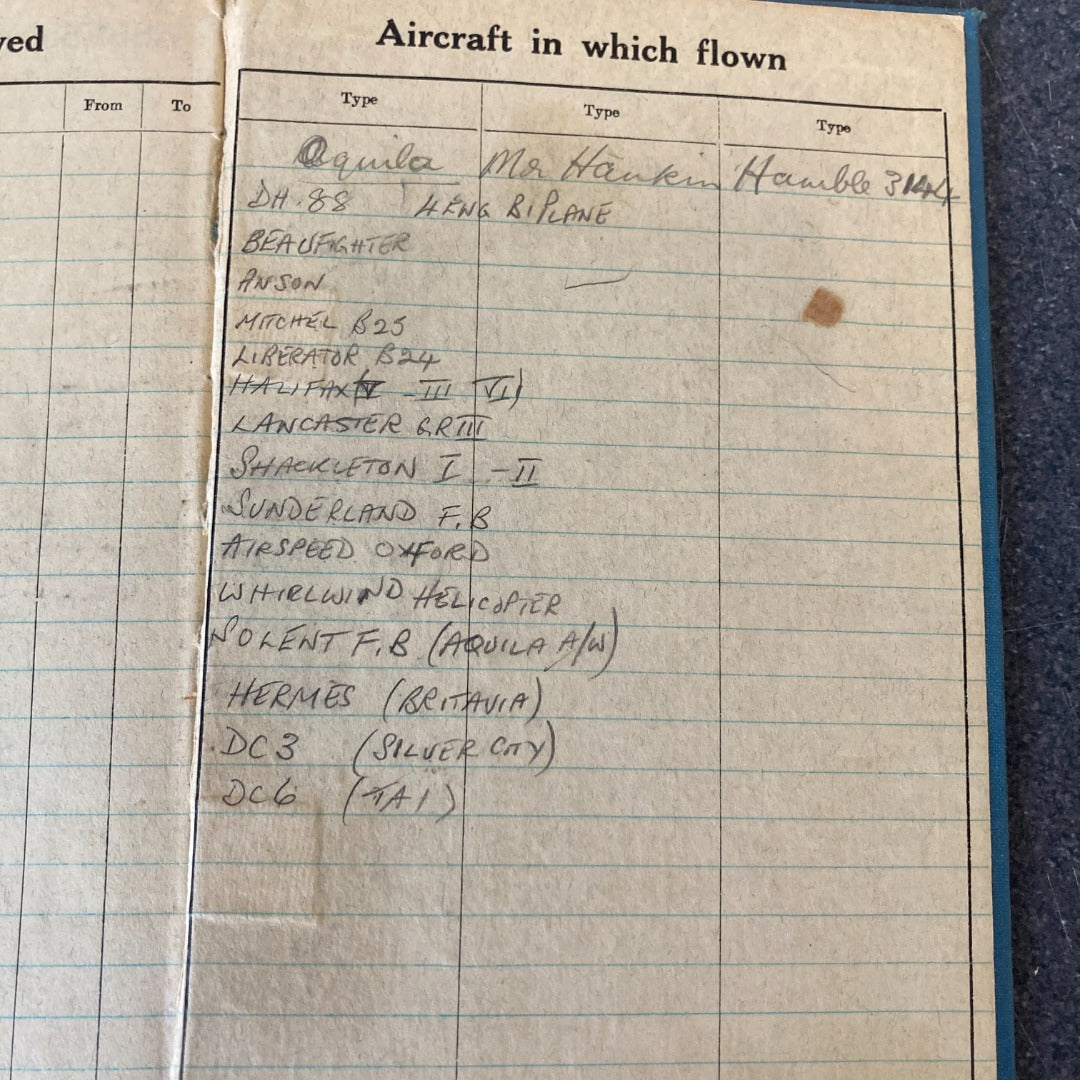 ved
Aircraft in which flown
From To Type Type Type
Aquila Mr Hankin Hamble 3144
DH.88 4 ENG BIPLANE
BEAUFIGHTER
ANSON
MITCHEL B25
LIBERATOR B24
HALIFAX (V - III VI)
LANCASTER G.R III
SHACKLETON I - II
SUNDERLAND F.B
AIRSPEED OXFORD
WHIRLWIND HELICOPTER
SOLENT F.B (AQUILA A/W)
HERMES (BRITAVIA)
DC3 (SILVER CITY)
DC6 (TAI)